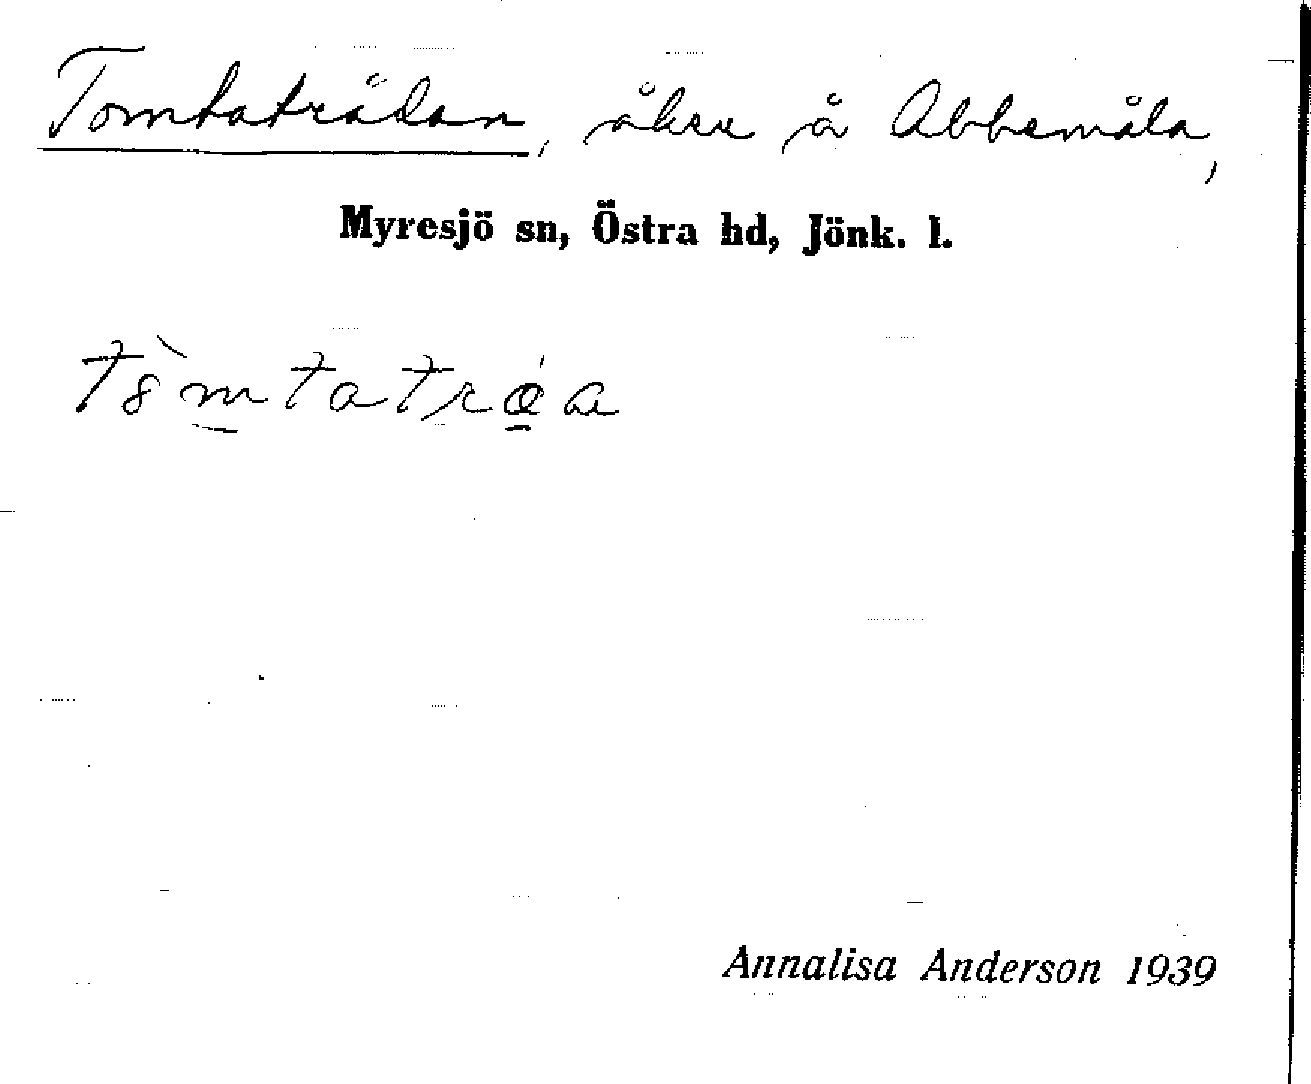 Tomtaträdan, åker å Abbemåla,
Myresjö sn, Östra hd, Jönk. l.
Annalisa Anderson 1939